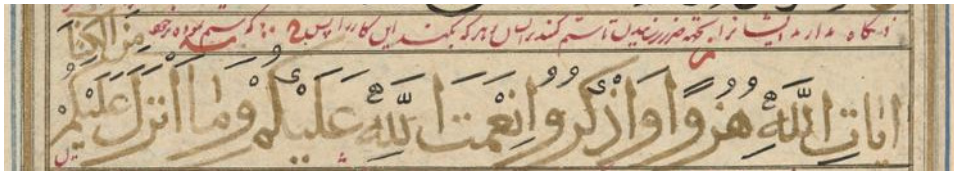 نگاه مدارید ایشانرا بجهة ضرر تا ستم کنید بر ایشان و هر که بکند این کار را پس ستم کرده مِنَ الْكِتَابِ
اٰيَاتِ اللَّهِ هُزُوًا وَاذْكُرُوا نِعْمَتَ اللَّهِ عَلَيْكُمْ وَمَا اَنْزَلَ عَلَيْكُمْ